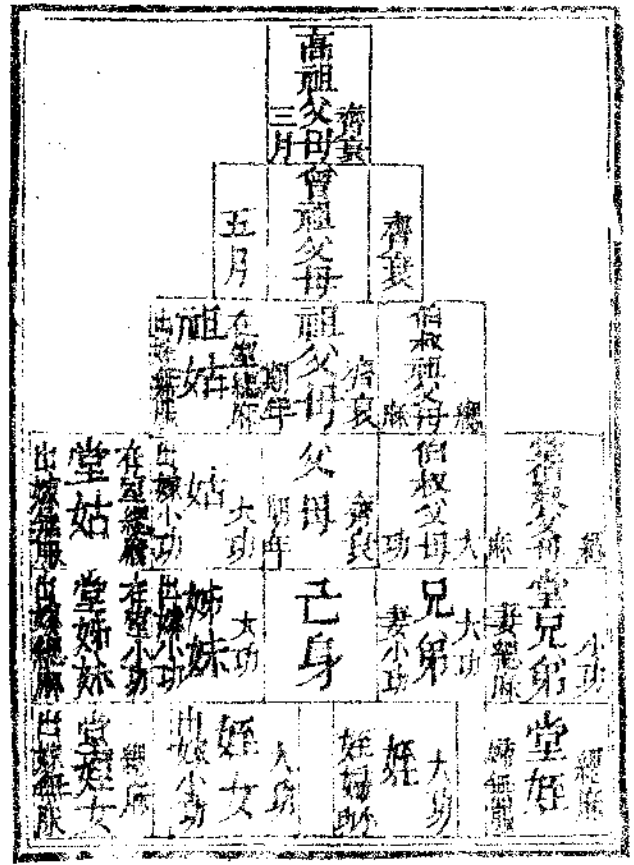 高祖父母
齊衰
三月
曾祖父母
齊衰
五月
伯叔祖父母
緦
麻
祖父母
齊衰
期年
祖姑
在室緦麻
出嫁無服
堂伯叔父母
緦
麻
伯叔父母
大
功
父母
齊衰
期年
姑
大功
出嫁小功
堂姑
在室緦麻
出嫁無服
堂兄弟
小功
妻緦麻
兄弟
大功
妻小功
己身
姊妹
大功
出嫁小功
堂姊妹
在室小功
出嫁緦麻
堂姪
緦麻
婦無服
姪
大功
姪婦
姪女
大功
出嫁小功
堂姪女
緦麻
出嫁無服